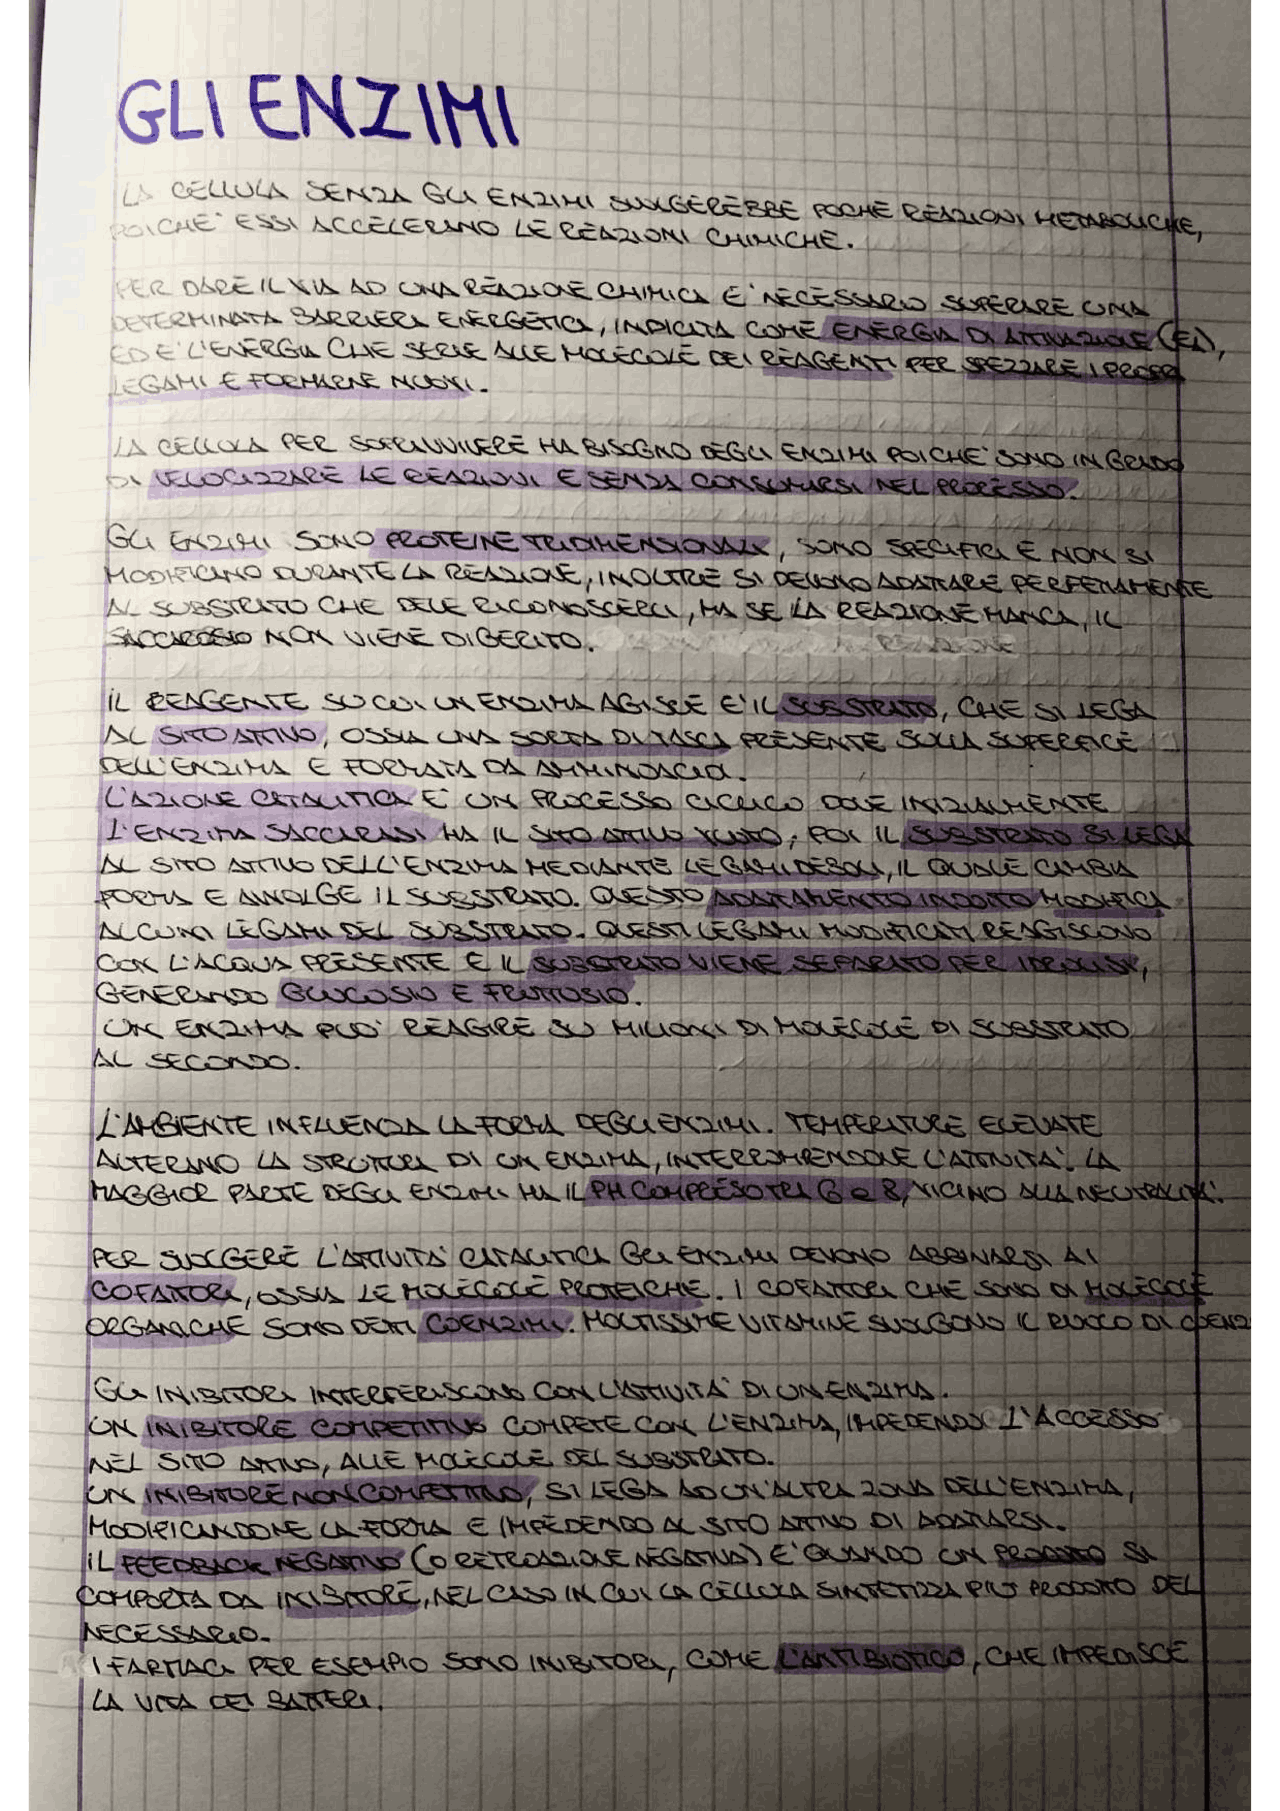 GLI ENZIMI
LA CELLULA SENZA GLI ENZIMI SVOLGEREBBE POCHE REAZIONI METABOLICHE,
POICHE' ESSI ACCELERANO LE REAZIONI CHIMICHE.
PER DARE IL VIA AD UNA REAZIONE CHIMICA E' NECESSARIO SUPERARE UNA
DETERMINATA BARRIERA ENERGETICA, INDICATA COME ENERGIA DI ATTIVAZIONE (EA),
ED E' L'ENERGIA CHE SERVE ALLE MOLECOLE DEI REAGENTI PER SPEZZARE I PROPRI
LEGAMI E FORMARNE NUOVI.
LA CELLULA PER SOPRAVVIVERE HA BISOGNO DEGLI ENZIMI POICHE' SONO IN GRADO
DI VELOCIZZARE LE REAZIONI E SENZA CONSUMARSI NEL PROCESSO.
GLI ENZIMI SONO PROTEINE TRIDIMENSIONALI, SONO SPECIFICI E NON SI
MODIFICANO DURANTE LA REAZIONE, INOLTRE SI DEVONO ADATTARE PERFETTAMENTE
AL SUBSTRATO CHE DEVE RICONOSCERLI, MA SE LA REAZIONE MANCA, IL
SACCAROSIO NON VIENE DIGERITO.
IL REAGENTE SU CUI UN ENZIMA AGISCE E' IL SUBSTRATO, CHE SI LEGA
AL SITO ATTIVO, OSSIA UNA SORTA DI TASCA PRESENTE SULLA SUPERFICE
DELL'ENZIMA E FORMATA DA AMMINOACIDI.
L'AZIONE CATALITICA E' UN PROCESSO CICLICO DOVE INIZIALMENTE
L'ENZIMA SACCARASI HA IL SITO ATTIVO VUOTO; POI IL SUBSTRATO SI LEGA
AL SITO ATTIVO DELL'ENZIMA MEDIANTE LEGAMI DEBOLI, IL QUALE CAMBIA
FORMA E AVVOLGE IL SUBSTRATO. QUESTO ADATTAMENTO INDOTTO MODIFICA
ALCUNI LEGAMI DEL SUBSTRATO. QUESTI LEGAMI MODIFICATI REAGISCONO
CON L'ACQUA PRESENTE E IL SUBSTRATO VIENE SEPARATO PER IDROLISI,
GENERANDO GLUCOSIO E FRUTTOSIO.
UN ENZIMA PUO' REAGIRE SU MILIONI DI MOLECOLE DI SUBSTRATO
AL SECONDO.
L'AMBIENTE INFLUENZA LA FORMA DEGLI ENZIMI. TEMPERATURE ELEVATE
ALTERANO LA STRUTTURA DI UN ENZIMA, INTERROMPENDONE L'ATTIVITA'. LA
MAGGIOR PARTE DEGLI ENZIMI HA IL PH COMPRESO TRA 6 e 8, VICINO ALLA NEUTRALITA'.
PER SVOLGERE L'ATTIVITA' CATALITICA GLI ENZIMI DEVONO ABBINARSI AI
COFATTORI, OSSIA LE MOLECOLE PROTEICHE. I COFATTORI CHE SONO DI MOLECOLE
ORGANICHE SONO DETTI COENZIMI. MOLTISSIME VITAMINE SVOLGONO IL RUOLO DI COENZ
GLI INIBITORI INTERFERISCONO CON L'ATTIVITA' DI UN ENZIMA.
UN INIBITORE COMPETITIVO COMPETE CON L'ENZIMA, IMPEDENDO L'ACCESSO
NEL SITO ATTIVO, ALLE MOLECOLE DEL SUBSTRATO.
UN INIBITORE NON COMPETITIVO, SI LEGA AD UN'ALTRA ZONA DELL'ENZIMA,
MODIFICANDONE LA FORMA E IMPEDENDO AL SITO ATTIVO DI ADATTARSI.
IL FEEDBACK NEGATIVO (O RETROAZIONE NEGATIVA) E' QUANDO UN PRODOTTO SI
COMPORTA DA INIBITORE, NEL CASO IN CUI LA CELLULA SINTETIZZA PIU' PRODOTTO DEL
NECESSARIO.
I FARMACI PER ESEMPIO SONO INIBITORI, COME L'ANTIBIOTICO, CHE IMPEDISCE
LA VITA DEI BATTERI.